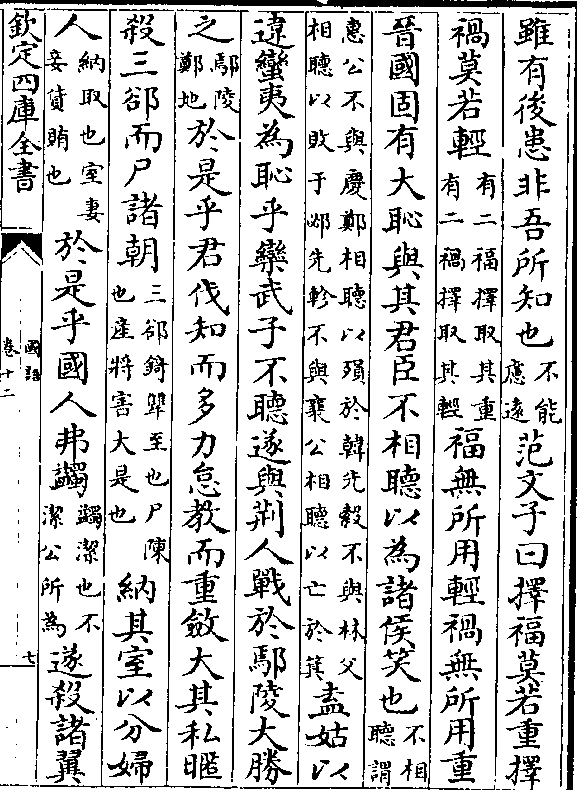 雖有後患非吾所知也不能慮遠范文子曰擇福莫若重擇
禍莫若輕有二福擇取其重有二禍擇取其輕福無所用輕禍無所用重
晉國固有大恥與其君臣不相聽以為諸侯笑也不相聽謂
惠公不與慶鄭相聽以殞於韓先縠不與林父相聽以敗于邲先軫不與襄公相聽以亡於箕盍姑以
違蠻夷為恥乎欒武子不聽遂與荆人戰於鄢陵大勝
之鄢陵鄭地於是乎君伐知而多力怠教而重斂大其私暱
殺三郤而尸諸朝三郤錡犨至也尸陳也產將害大是也納其室以分婦
人納取也室妻妾貨賄也於是乎國人弗蠲蠲潔也不潔公所為遂殺諸翼
欽定四庫全書
國語
卷十二
七